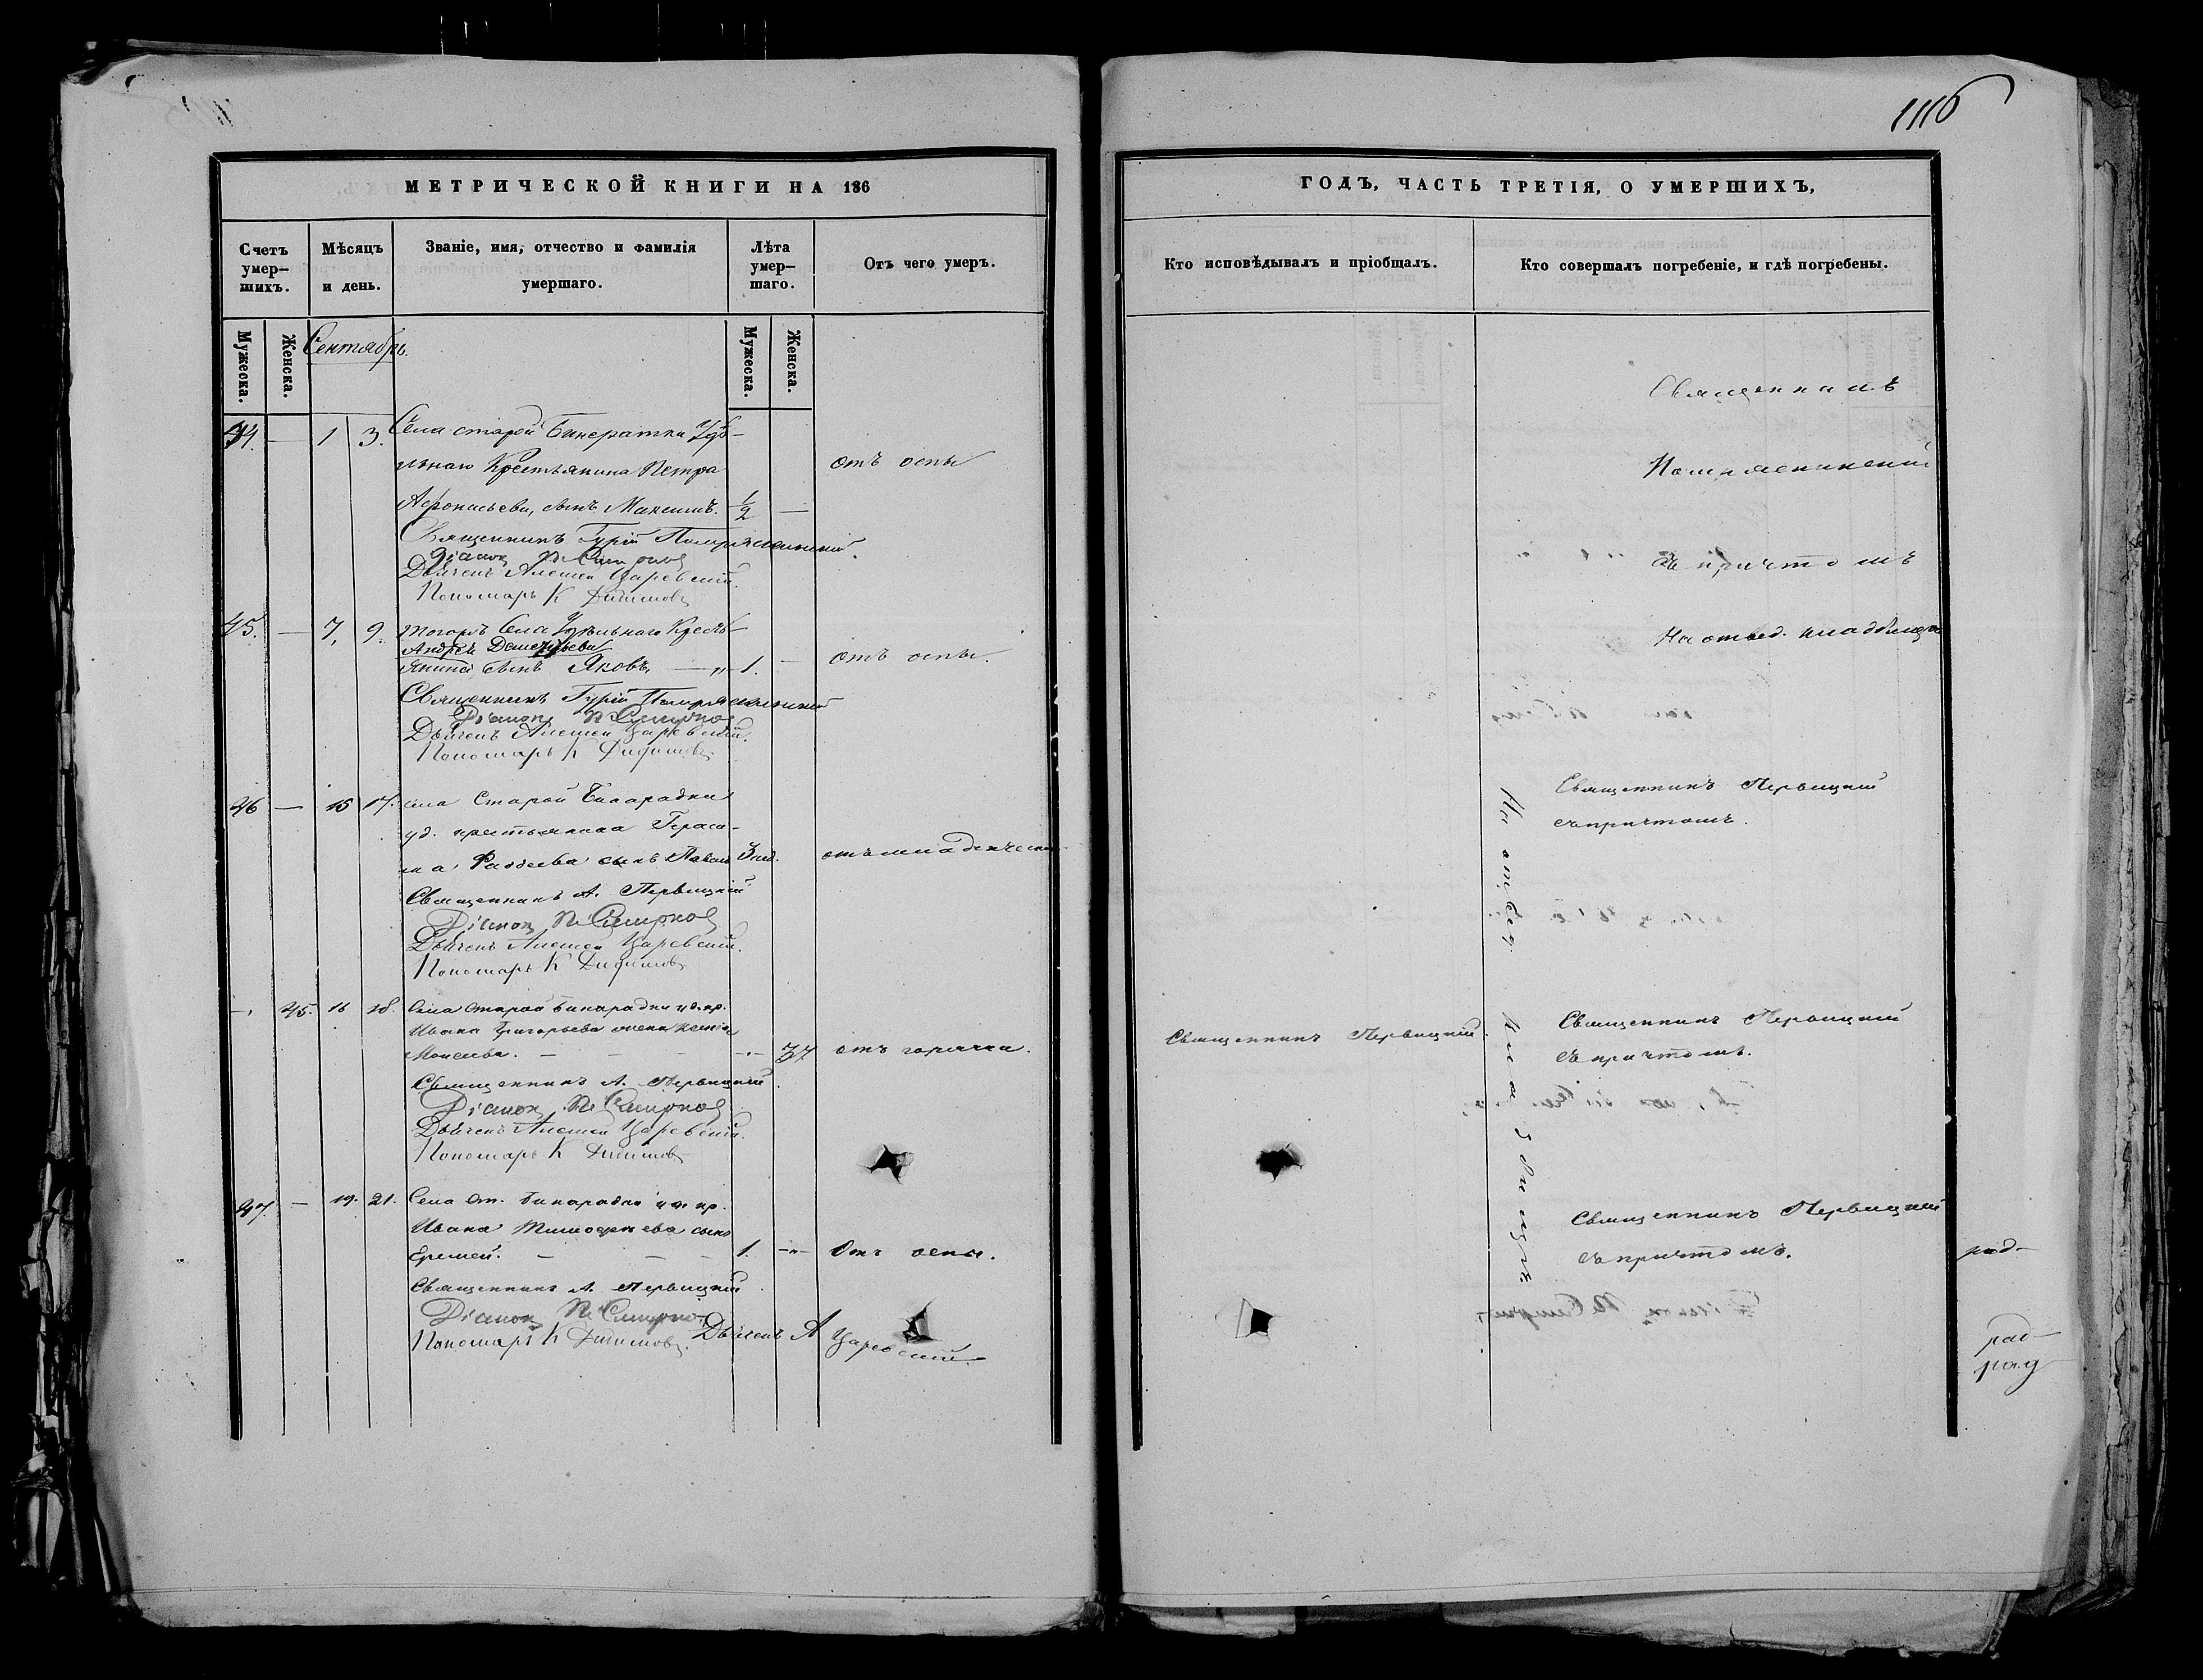 1116
МЕТРИЧЕСКОЙ КНИГИ НА 186
Счетъ умер-шихъ.
Мѣсяцъ и день.
Званіе, имя, отчество и фамилія умершаго.
Лѣта умер-шаго.
Отъ чего умеръ.
Мужеска.
Женска.
Сентябрь.
Мужеска.
Женска.
44. — 1 3. Села старой Бинератки Удѣ-
льнаго Крестьянина Петра
отъ оспы
Афонасьева, сынъ Максимъ. 1/2 —
Священникъ Гурій
Діаконъ П Смирновъ
Дьячекъ Алексей Царевскій.
Пономарь К Дидимовъ
45. — 7, 9. тогожъ Села Удѣльнаго Кресть-
Андрея Дементьева
янина сынъ Яковъ, — „ 1. —
отъ оспы.
Священникъ Гурій
Діаконъ П Смирновъ
Дьячекъ Алексей Царевскій.
Пономарь К Дидимовъ
46 — 15 17. села Старой Бинарадки
уд. крестьянина Гераси-
ма Фаддеева сынъ Павелъ 3 нед.
отъ младенческ
Священникъ А. Первицкій
Діаконъ П Смирновъ
Дьячекъ Алексей Царевскій.
Пономарь К Дидимовъ
—. 45. 16 18. Села Старой Бинарадки уд. кр.
Ивана Григорьева жена Ксенія
Моисеева. — — — 37
отъ горячки.
Священникъ А. Первицкій
Діаконъ П Смирновъ
Дьячекъ Алексей Царевскій.
Пономарь К Дидимовъ
47. — 19. 21. Села Ст. Бинарадки уд. кр.
Ивана Тимофеева сынъ
Еремей. — — — 1. —„—
Отъ оспы.
Священникъ А. Первицкій
Діаконъ П Смирновъ
Пономарь К Дидимовъ. Дьячекъ А Царевскій
ГОДЪ, ЧАСТЬ ТРЕТІЯ, О УМЕРШИХЪ,
Кто исповѣдывалъ и пріобщалъ.
Кто совершалъ погребеніе, и гдѣ погребены.
съ причтомъ
На отвед. кладбищѣ
Священникъ Первицкій
съ причтомъ.
На отвед. кладбищѣ
Священникъ Первицкій.
Священникъ Первицкій
съ причтомъ.
Священникъ Первицкій
съ причтомъ.
рад-
рад-
рад